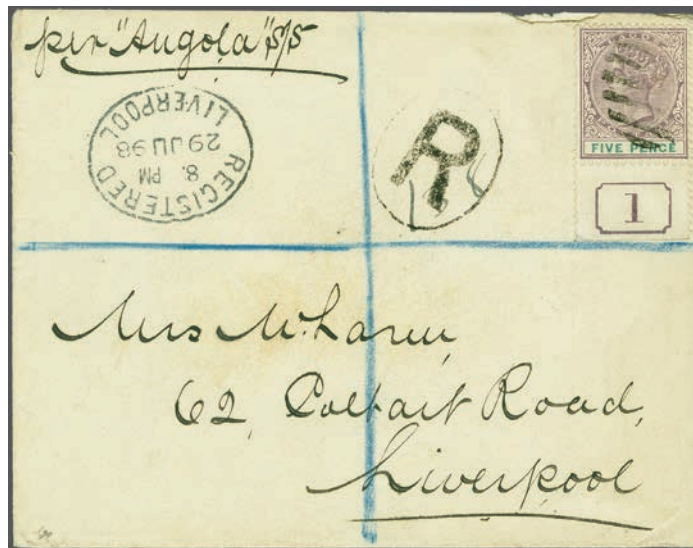 per "Angola" S/S
REGISTERED
8. PM
29 JU 98
LIVERPOOL
R
FIVE PENCE
1
Mrs McLaren,
62, Coltart Road,
Liverpool